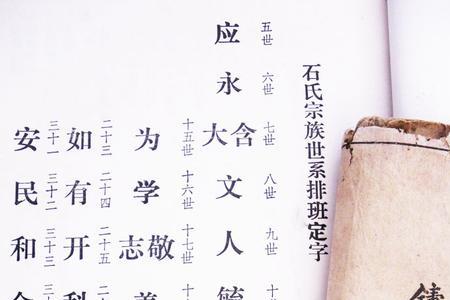 石氏宗族世系排班定字
五世 六世 七世 八世 九世 十
应永含大文人毓
十五世 十六世 十七世 十
为学敬志善
二十三 二十四 二十五 二十
如有开科
三十一 三十二 三十三 三
安民和